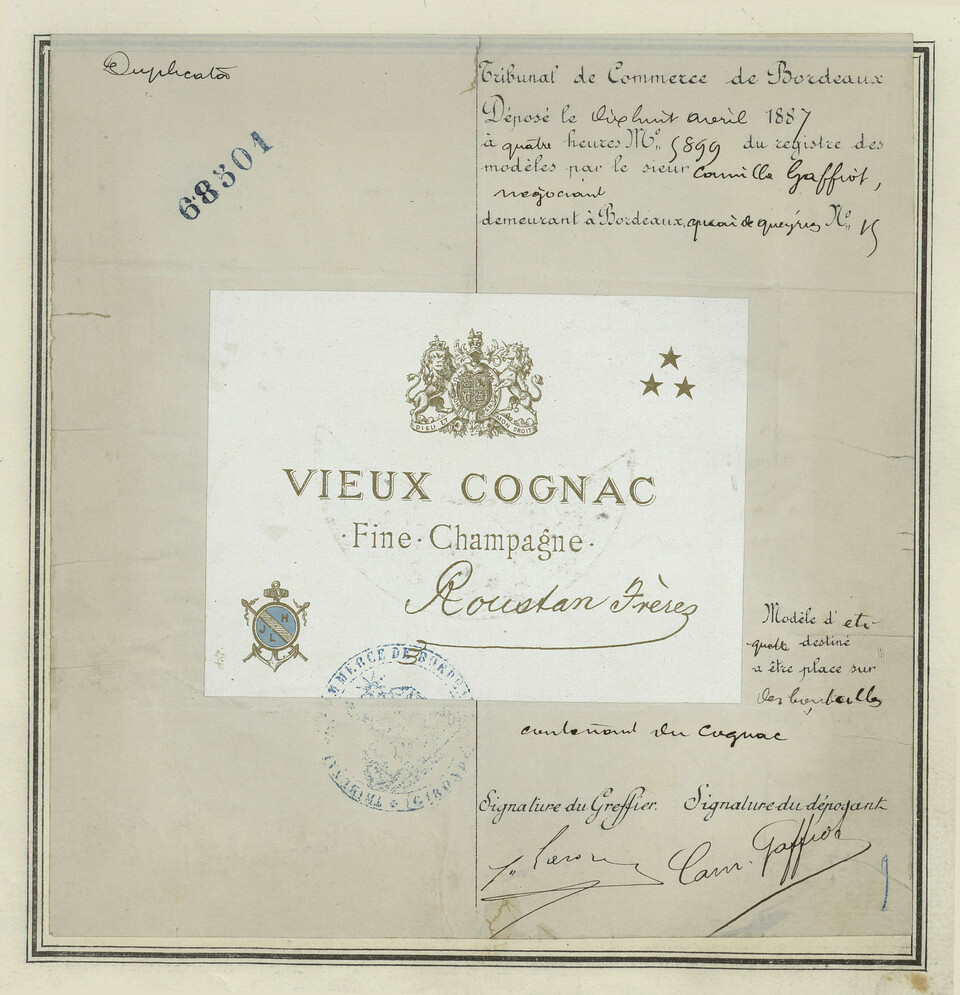 Duplicata
68301
Tribunal de Commerce de Bordeaux
Déposé le dixhuit avril 1887
à quatre heures No. 5899 du registre des
modèles par le sieur Camille Gaffiot,
négociant
demeurant à Bordeaux, quai de queyries No. 15
DIEU ET MON DROIT
VIEUX COGNAC
·Fine·Champagne·
Roustan Frères
J H L
Modèle d'éti-
quette destiné
a être place sur
des bouteilles
contenant du Cognac
COMMERCE DE BORDEAUX
TRIBUNAL
(GIRONDE)
Signature du Greffier. Signature du déposant
Cam. Gaffiot